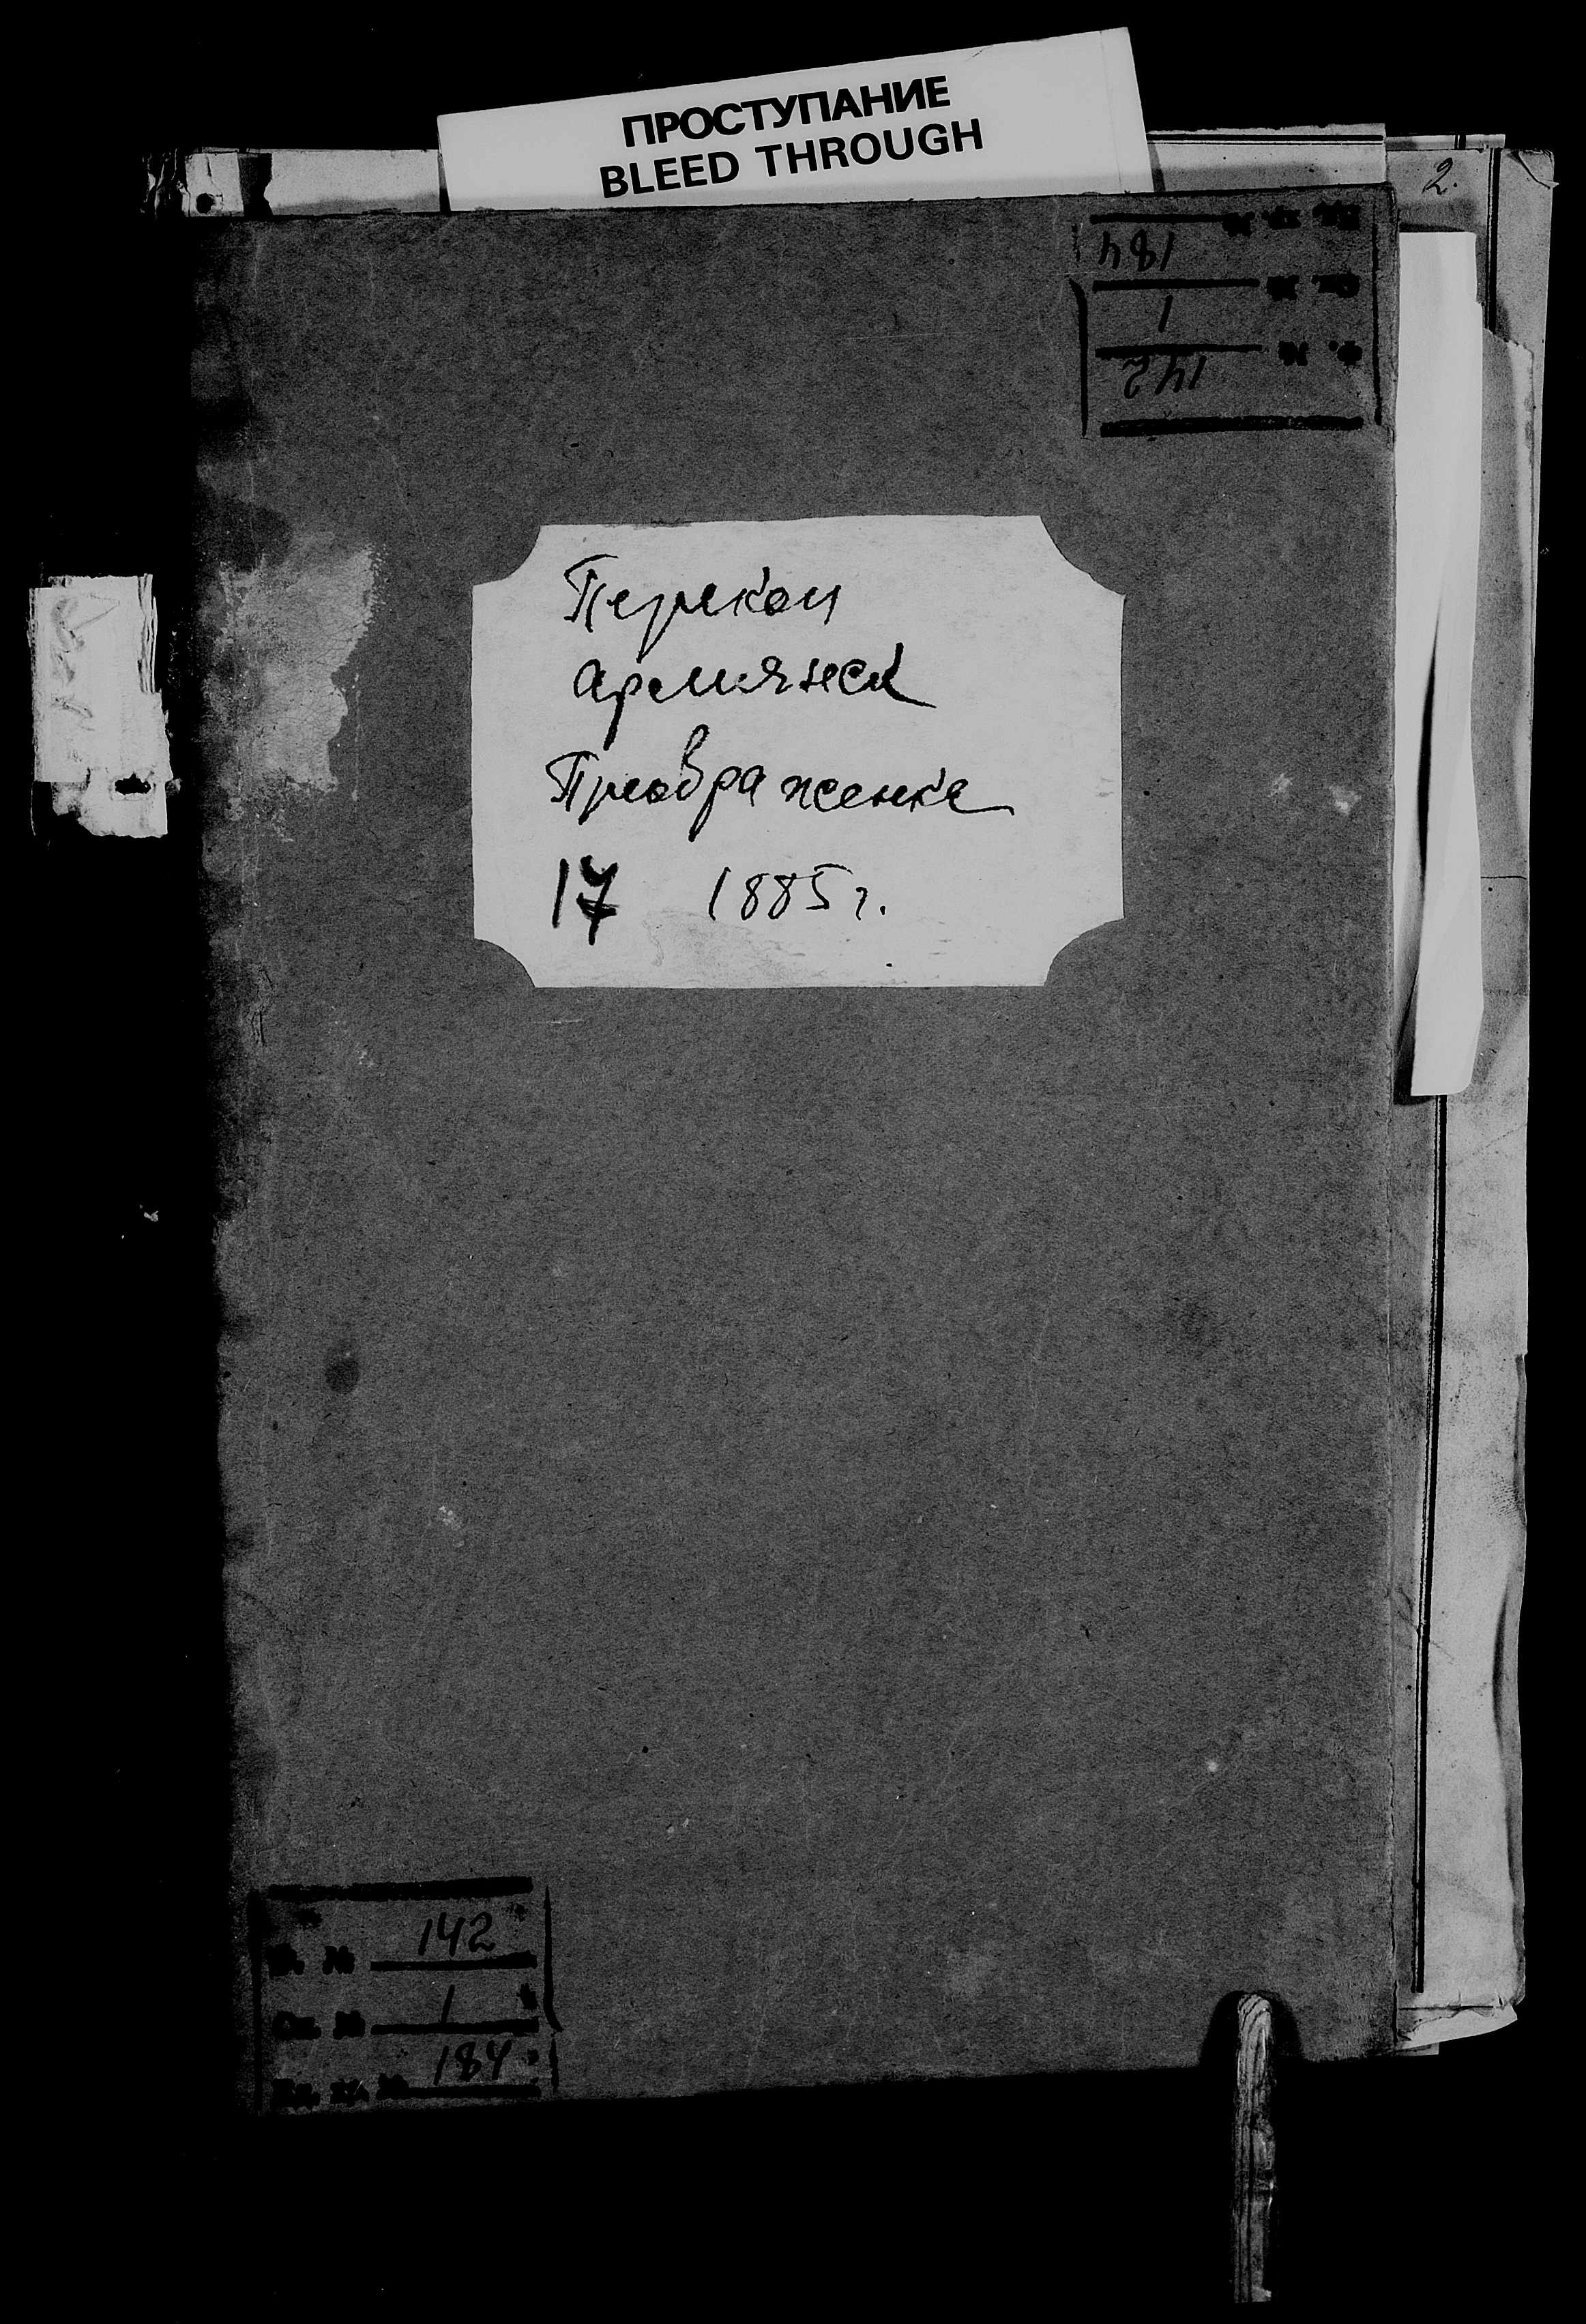 ПРОСТУПАНИЕ
BLEED THROUGH
2.
Ед. хр. № 184
Оп. № 1
Ф. № 142
Перекоп
Армянск
Преображенка
17 1885 г.
Ф. № 142
Оп. № 1
Ед. хр. № 184